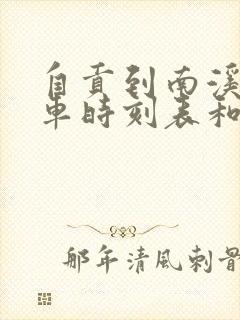 自贡到南溪
车时刻表和
那年清風刺骨